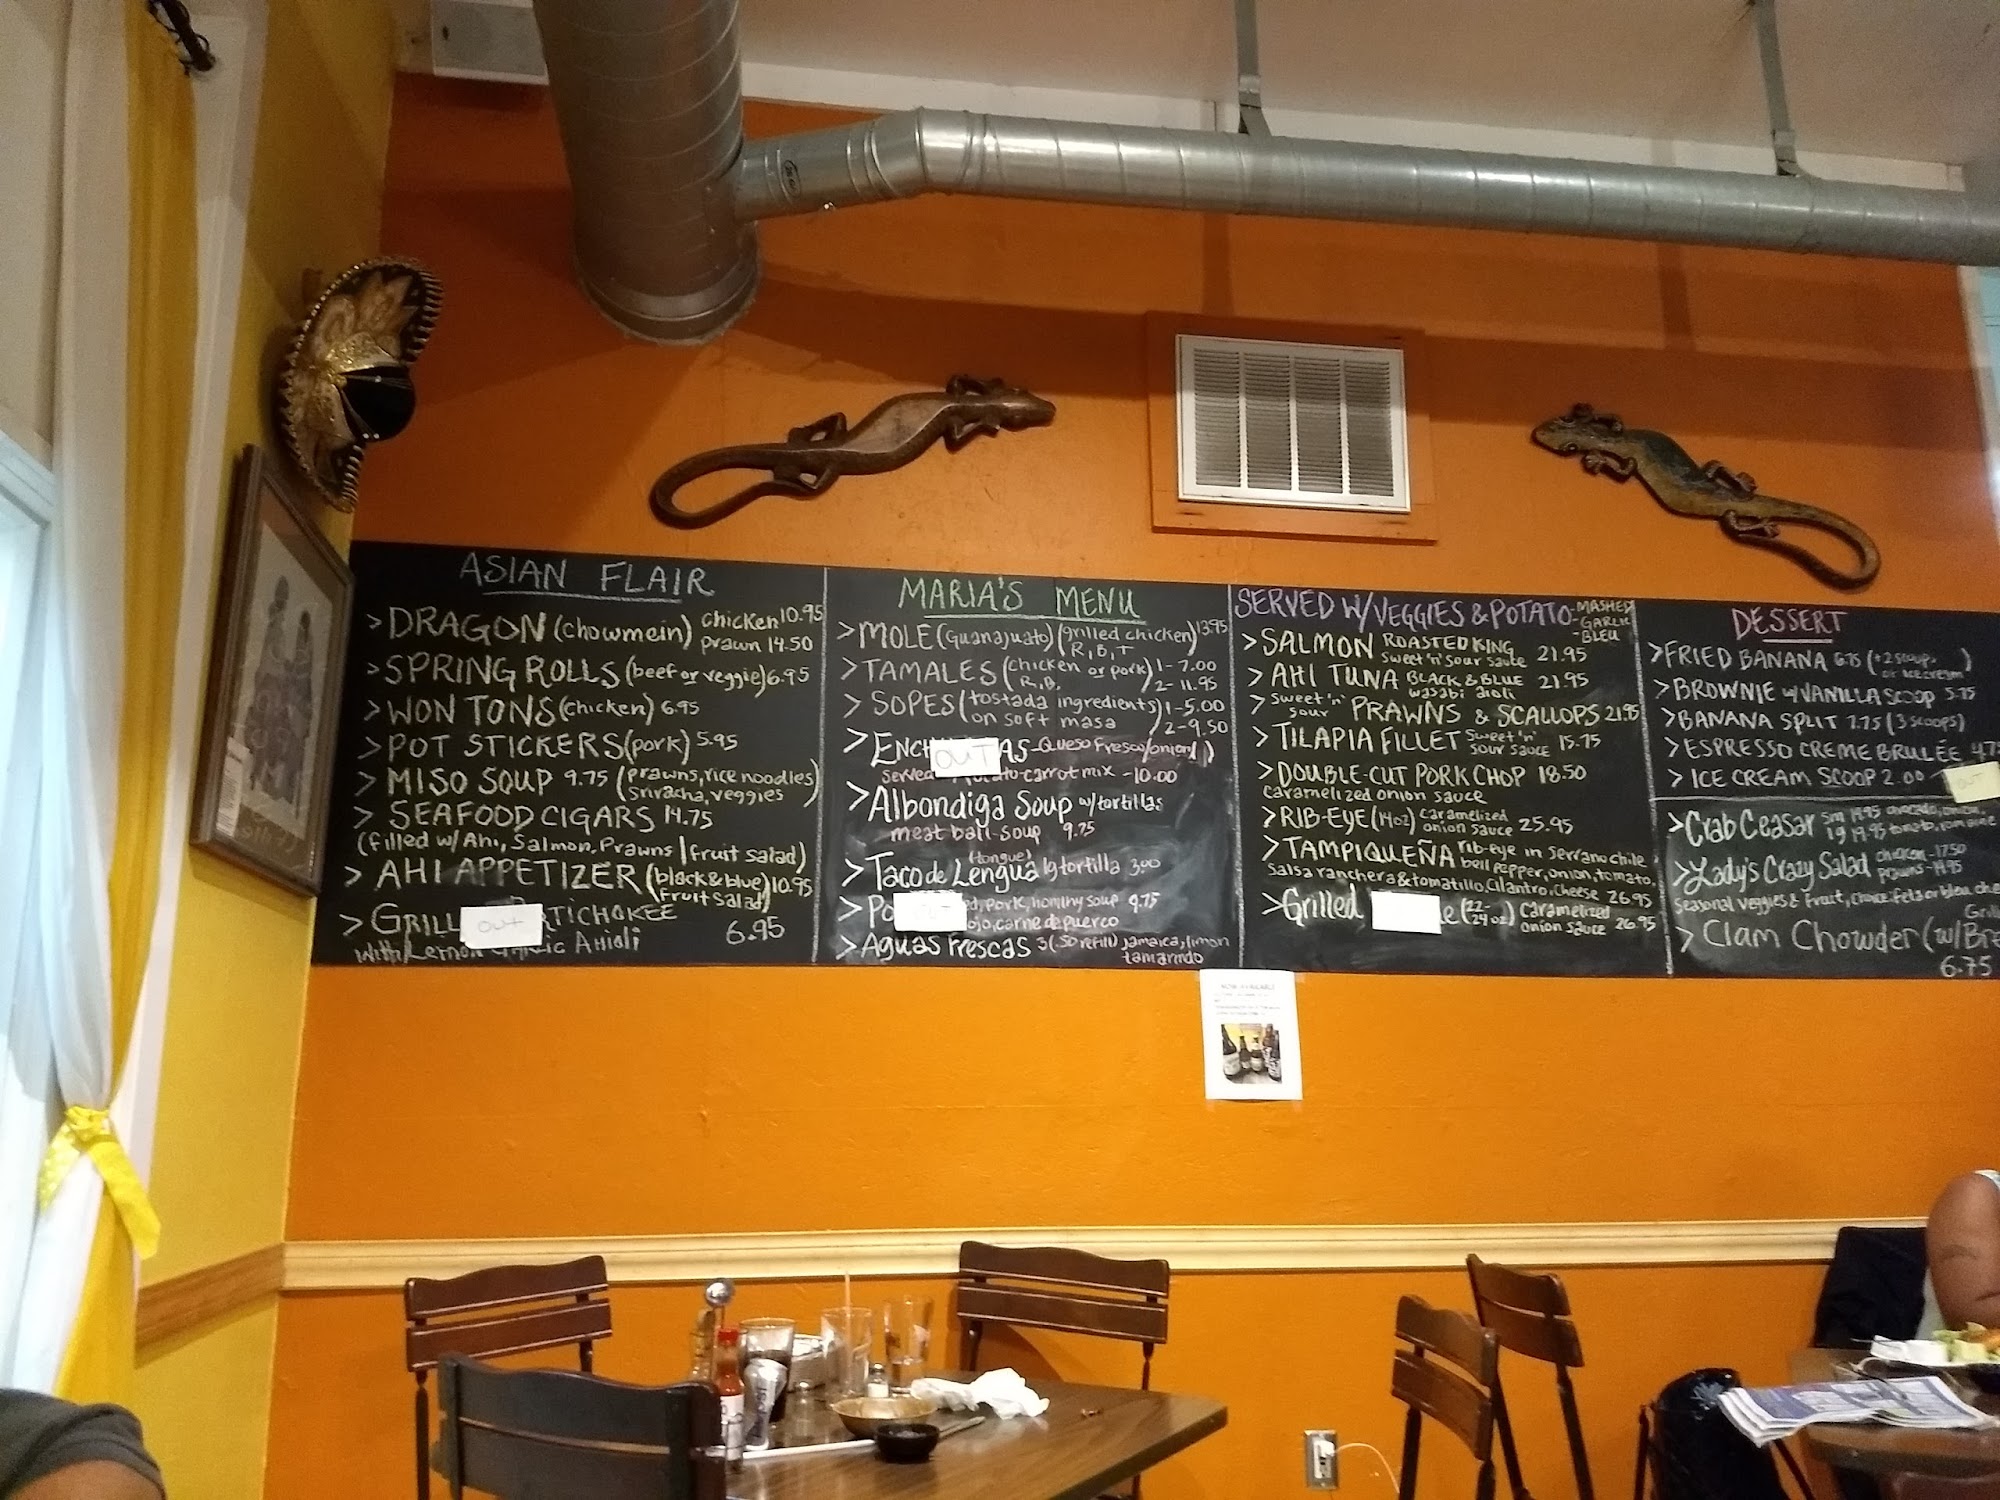 ASIAN FLAIR
> DRAGON (chowmein) chicken 10.95
prawn 14.50
> SPRING ROLLS (beef or veggie) 6.95
> WON TONS (chicken) 6.95
> POT STICKERS (pork) 5.95
> MISO SOUP 9.75 (prawns, rice noodles
sriracha, veggies)
> SEAFOOD CIGARS 14.75
(filled w/ Ahi, Salmon, Prawns / fruit salad)
> AHI APPETIZER (black & blue) 10.95
fruit salad)
> GRILL OUT RTICHOKEE
with Lemon Garlic Ahioli 6.95
MARIA'S MENU
> MOLE (Guanajuato) (grilled chicken) 13.95
R, B, T
> TAMALES (chicken or pork) 1-7.00
R, B, 2-11.95
> SOPES (tostada ingredients) 1-5.00
on soft masa 2-9.50
> ENCH OUT AS - Queso Fresco/onion
served carrot mix - 10.00
> Albondiga Soup w/tortillas
meat ball-soup 9.75
(tongue)
> Taco de Lengua 1g tortilla 3.00
> Po ed, pork, hominy soup 9.75
ojo, carne de puerco
> Aguas Frescas 3 (.50 refill) jamaica, limon
tamarindo
SERVED W/VEGGIES & POTATO - MASHED
- GARLIC
- BLEU
> SALMON ROASTED KING
sweet 'n' sour sauce 21.95
> AHI TUNA BLACK & BLUE
wasabi aioli 21.95
> sweet 'n'
sour PRAWNS & SCALLOPS 21.95
> TILAPIA FILLET sweet 'n'
sour sauce 15.75
> DOUBLE-CUT PORK CHOP 18.50
caramelized onion sauce
> RIB-EYE (14oz) caramelized
onion sauce 25.95
> TAMPIQUEÑA rib-eye in serrano chile,
bell pepper, onion, tomato,
salsa ranchera & tomatillo, cilantro, cheese 26.95
> Grilled e (22-
24 oz) caramelized
onion sauce 26.95
DESSERT
> FRIED BANANA 6.75 (+2 scoup.
or icecream)
> BROWNIE w/ VANILLA SCOOP 5.75
> BANANA SPLIT 7.75 (3 scoops)
> ESPRESSO CREME BRULÉE 4.75
> ICE CREAM SCOOP 2.00
OUT
> Crab Ceasar sm 14.95 avocado,
lg 19.95 tomato, romaine
> Lady's Crazy Salad chicken - 17.50
prawns - 19.95
seasonal veggies & fruit, choice feta or bleu che
> Clam Chowder (w/Bre
6.75
NOW AVAILABLE